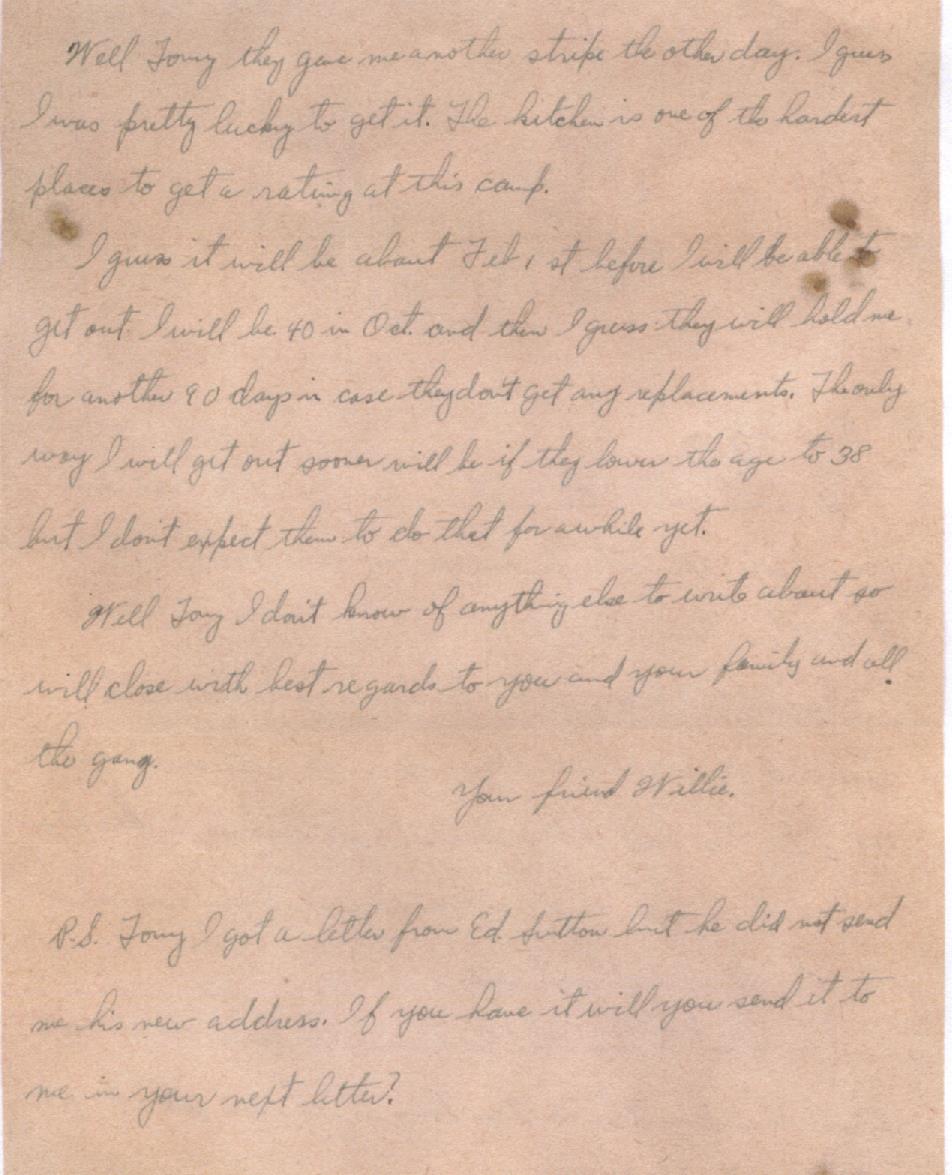 Well Tony they gave me another stripe the other day. I guess
I was pretty lucky to get it. The kitchen is one of the hardest
places to get a rating at this camp.
I guess it will be about Feb 1 st before I will be able to
get out. I will be 40 in Oct. and then I guess they will hold me
for another 90 days in case they don't get any replacements. The only
way I will get out sooner will be if they lower the age to 38
but I don't expect them to do that for awhile yet.
Well Tony I don't know of anything else to write about so
will close with best regards to you and your family and all
the gang.
Your friend Willie.
P.S. Tony I got a letter from Ed. Sutton but he did not send
me his new address. If you have it will you send it to
me in your next letter?